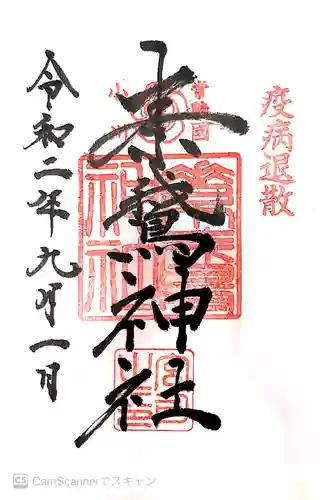 疫病退散
常陸國
小川
素鵞神社
令和二年九月一日
CS CamScannerでスキャン